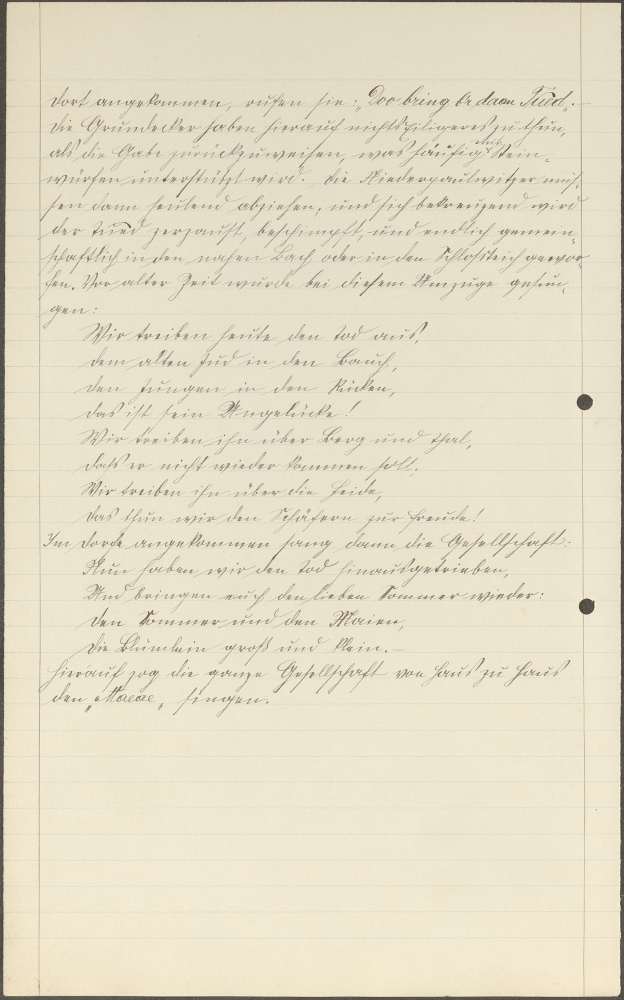 dort angekommen, rufen sie: „Doo bring br daan Tuud„. –
Die Grundecker haben hierauf nichts Eiligeres zu thun,
als die Gabe zurückzuweisen, was häufig mit Stein-
würfen unterstützt wird. Die Niederpaulwitzer müs-
sen dann heulend abziehen, und sich bekreuzend wird
der Tuud zerzaust, beschimpft, und endlich gemein-
schaftlich in den nahen Bach oder in den Schlossteich gewor-
fen. Vor alter Zeit wurde bei diesem Umzuge gesun-
gen:
Wir treiben heute den Tod aus,
dem alten Jud in den Bauch,
den Jungen in den Rücken,
das ist sein Ungelücke!
Wir treiben ihn über Berg und Thal,
dass er nicht wieder kommen soll;
Wir treiben ihn über die Heide,
das thun wir den Schäfern zur Freude!
Im Dorfe angekommen sang dann die Gesellschaft:
Nun haben wir den Tod hinausgetrieben,
Und bringen euch den lieben Sommer wieder:
den Sommer und den Maien,
die Blümlein groß und klein. –
Hierauf zog die ganze Gesellschaft von Haus zu Haus
den „Maeae„ singen.